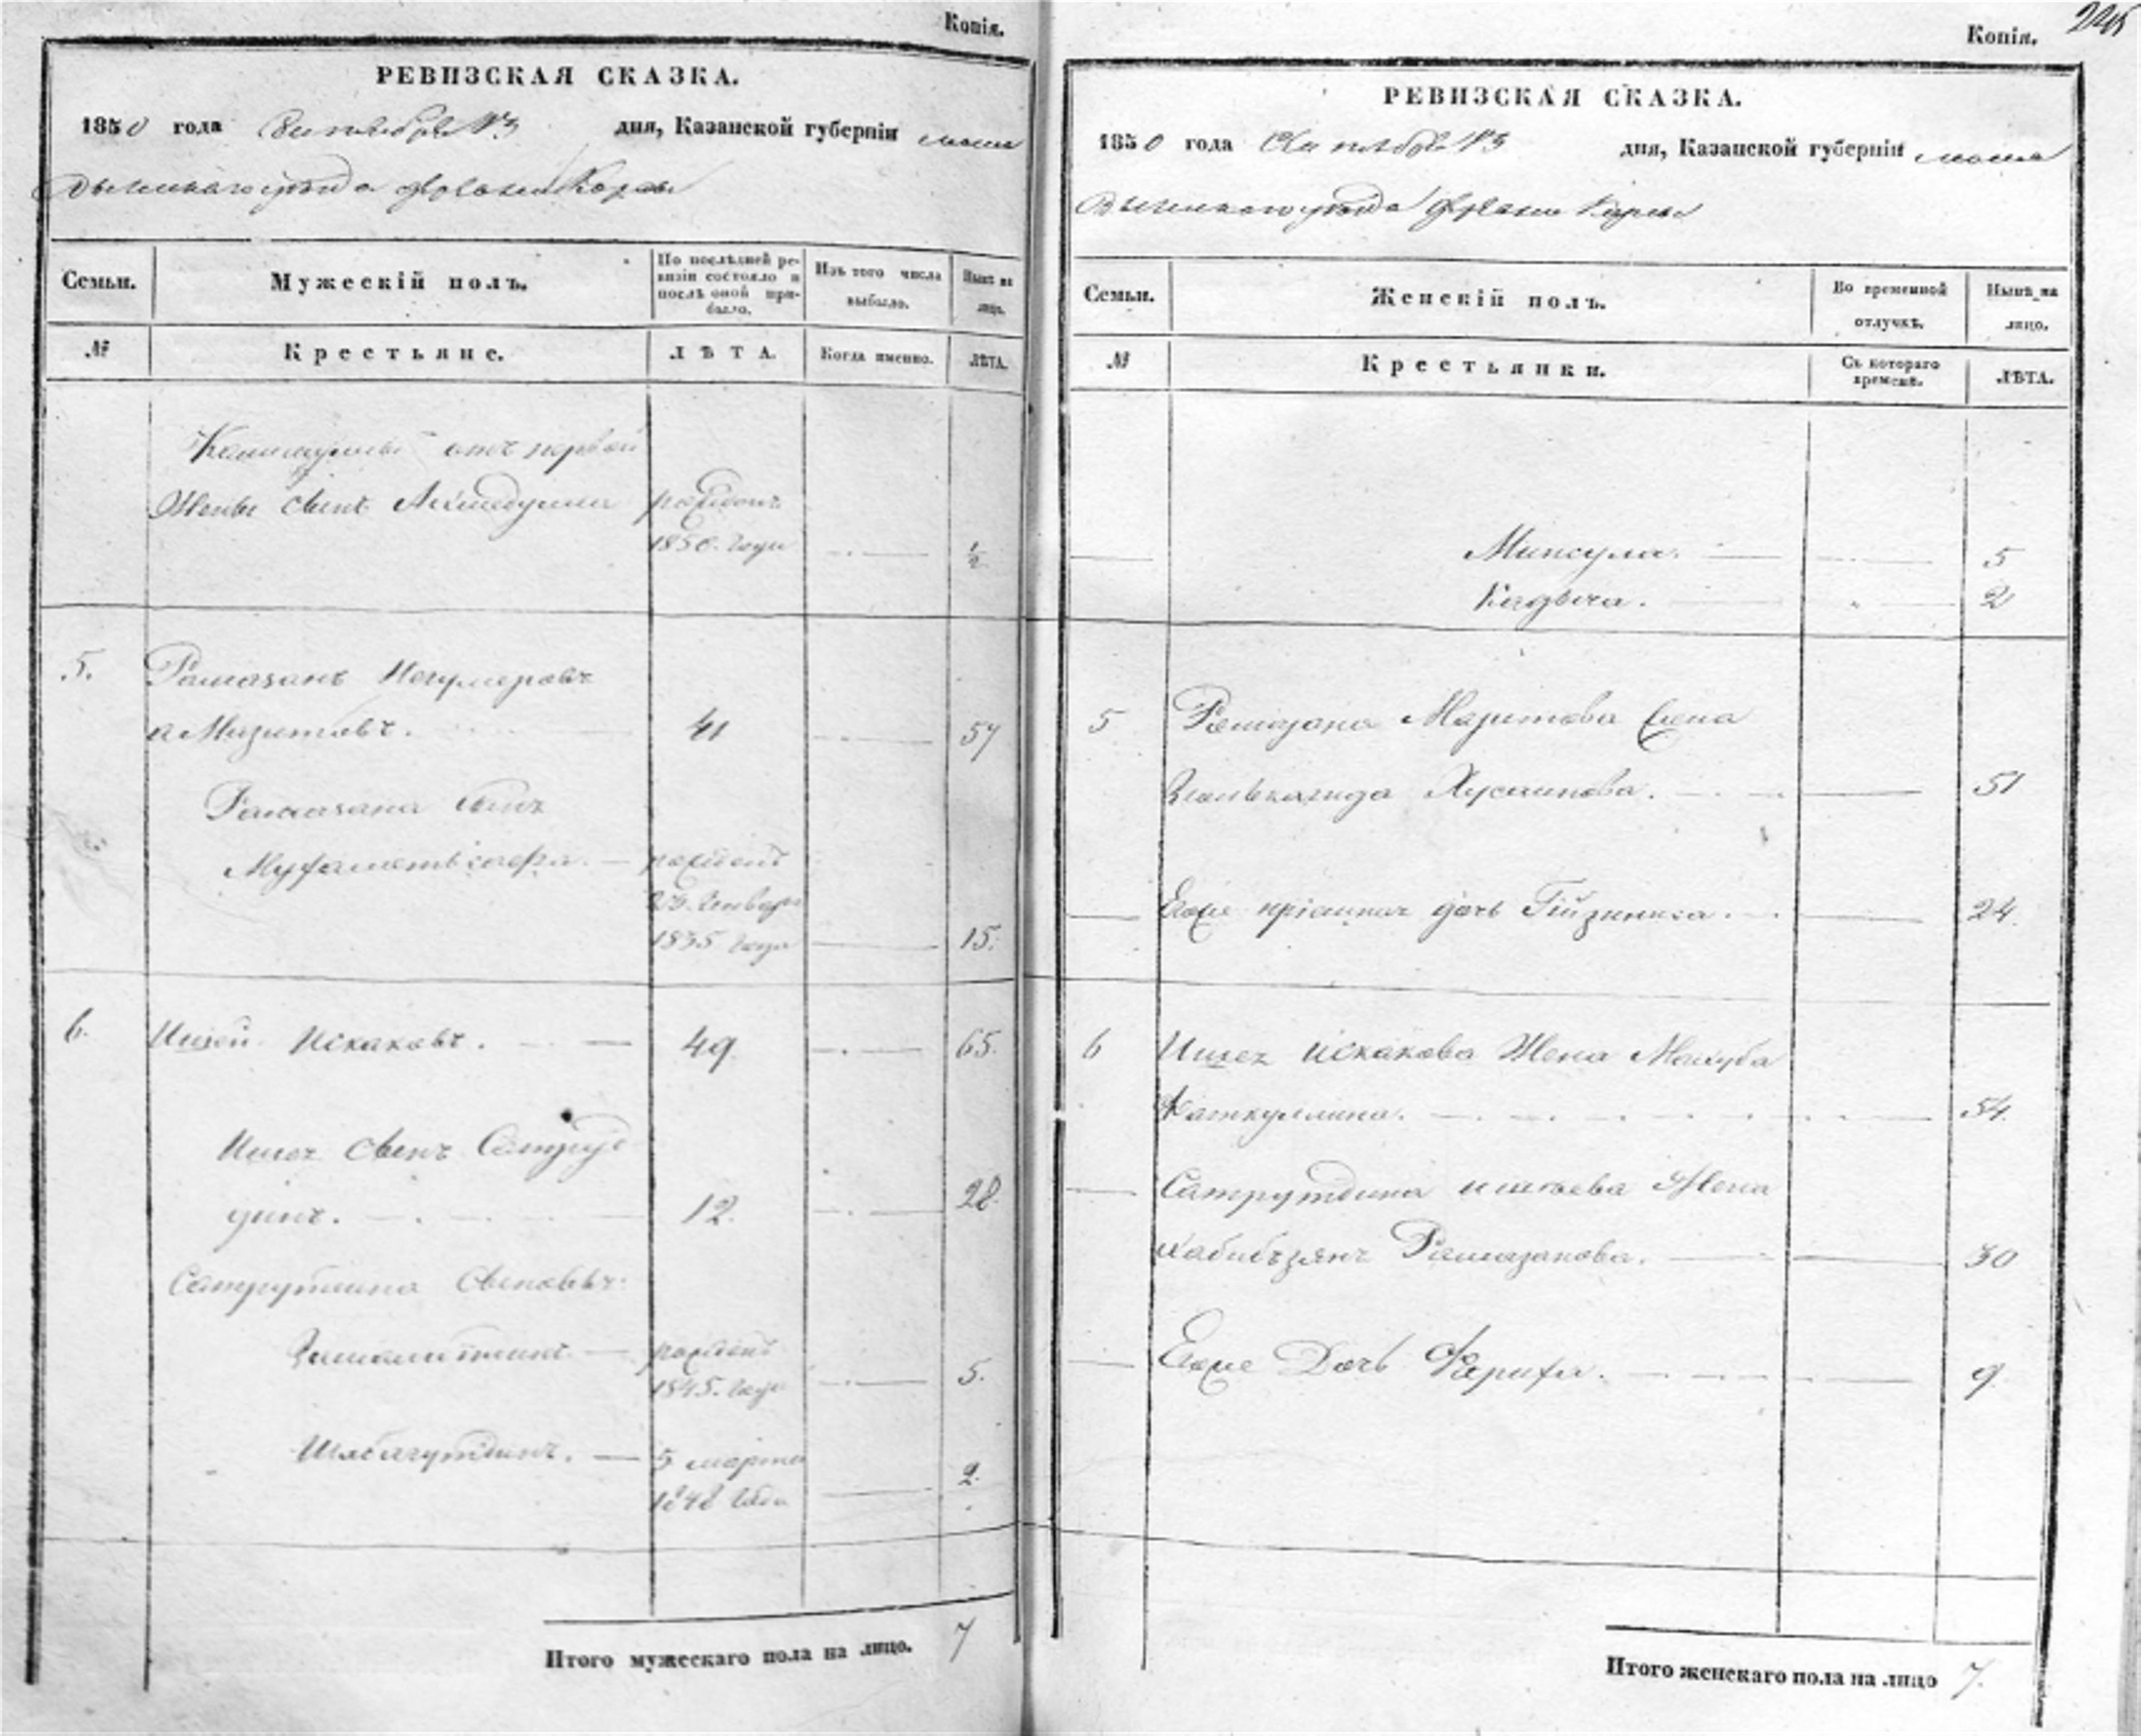 Копія.
РЕВИЗСКАЯ СКАЗКА.
1850 года Сентября 13 дня, Казанской губерніи мама
дышскаго уѣзда деревни
Семьи.
Мужескій полъ.
По послѣдней ре-
визіи состояло и
послѣ оной при-
было.
Изъ того числа
выбыло.
Нынѣ на
лицо.
№
Крестьяне.
ЛѢТА.
Когда именно.
ЛѢТА.
отъ первой
Жены сынъ Ахмадулла рожденъ
1850. года ½
5. Рамазанъ
а Мязитовъ. 41 57
Рамазана сынъ
рожденъ
23. Января
1835 года 15.
6. Ишей Искаковъ. 49 65.
Ишея сынъ Сатруд
динъ. 12. 28.
Сатрутдина Сыновья
рожденъ
1845. года 5.
Шабагутдинъ. 5 марта
1848 года 2.
Итого мужескаго пола на лицо. 7
Копія.
РЕВИЗСКАЯ СКАЗКА.
1850 года Сентября 13 дня, Казанской губерніи мама
дышскаго уѣзда деревни
Семьи.
Женскій полъ.
Во временной
отлучкѣ.
Нынѣ на
лицо.
№
Крестьянки.
Съ котораго
времени.
ЛѢТА.
5
Кадыча. 2
5 Рамазана Мазитова Жена
Хусаинова. 51
Егоже дочь 24.
6 Ишея Искакова Жена Махуба
Фаткуллина. 54.
Сатрутдина Ишеева Жена
Хабибъзянъ Рамазанова. 30
Егоже Дочь Фарифа. 9
Итого женскаго пола на лицо 7.